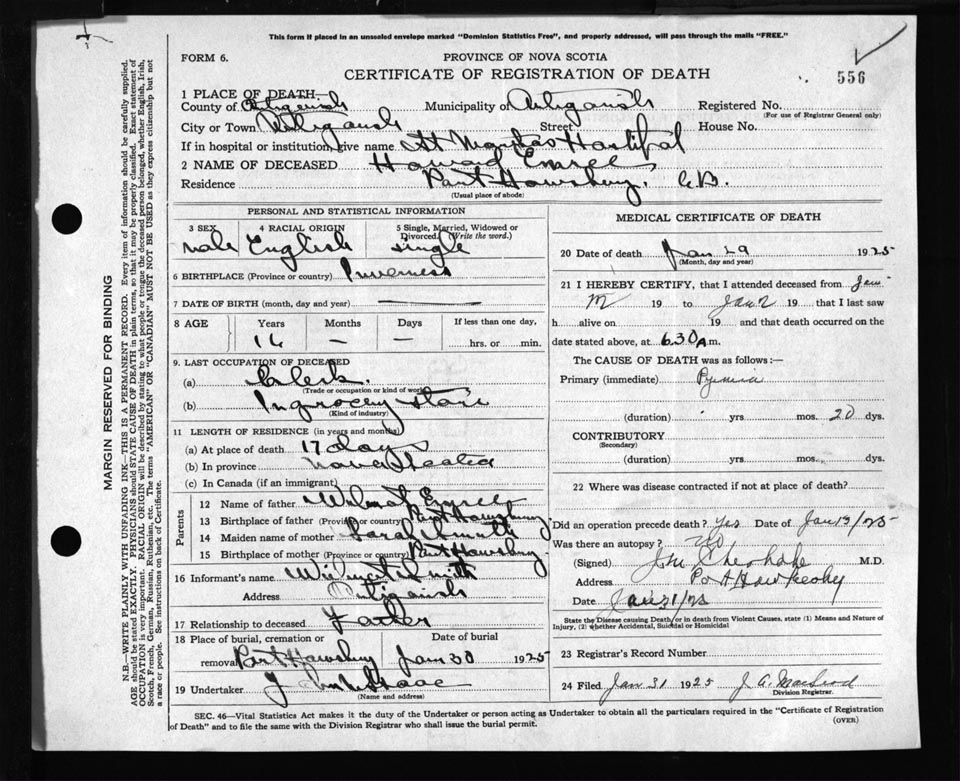 This form if placed in an unsealed envelope marked "Dominion Statistics Free", and properly addressed, will pass through the mails "FREE."
FORM 6.
PROVINCE OF NOVA SCOTIA
CERTIFICATE OF REGISTRATION OF DEATH
556
1 PLACE OF DEATH
County of Antigonish Municipality of Antigonish Registered No.
(For use of Registrar General only)
City or Town Antigonish Street House No.
If in hospital or institution, give name St Hospital
2 NAME OF DECEASED Howard
Residence Port C.B.
(Usual place of abode)
PERSONAL AND STATISTICAL INFORMATION
3 SEX 4 RACIAL ORIGIN 5 Single, Married, Widowed or Divorced. (Write the word.)
Male English Single
6 BIRTHPLACE (Province or country) Inverness
7 DATE OF BIRTH (month, day and year)
8 AGE Years Months Days If less than one day,
16 — — hrs. or min.
9. LAST OCCUPATION OF DECEASED
(a) Clerk.
(Trade or occupation or kind of work)
(b) In grocery store
(Kind of industry)
11 LENGTH OF RESIDENCE (in years and months)
(a) At place of death 17 days
(b) In province Nova Scotia
(c) In Canada (if an immigrant)
Parents
12 Name of father
13 Birthplace of father (Province or country) Port
14 Maiden name of mother Sarah
15 Birthplace of mother (Province or country) Port
16 Informant's name
Address Antigonish
17 Relationship to deceased Father
18 Place of burial, cremation or removal Port Date of burial Jan 30 1925
19 Undertaker J
(Name and address)
MEDICAL CERTIFICATE OF DEATH
20 Date of death Jan 29 1925
(Month, day and year)
21 I HEREBY CERTIFY, that I attended deceased from Jan
19 to Jan 19 that I last saw
h alive on 19 and that death occurred on the
date stated above, at 6.30 A m.
The CAUSE OF DEATH was as follows:—
Primary (immediate) Pyemia
(duration) yrs. mos. 20 dys.
CONTRIBUTORY
(Secondary)
(duration) yrs. mos. dys.
22 Where was disease contracted if not at place of death?
Did an operation precede death? Yes Date of Jan 13/25
Was there an autopsy? no
(Signed) M.D.
Address Port Hawkesbury
Date Jan 31/25
State the Disease causing Death, or in death from Violent Causes, state (1) Means and Nature of Injury, (2) whether Accidental, Suicidal or Homicidal
23 Registrar's Record Number
24 Filed Jan 31 1925 J. A. MacLeod
Division Registrar.
SEC. 46—Vital Statistics Act makes it the duty of the Undertaker or person acting as Undertaker to obtain all the particulars required in the "Certificate of Registration
of Death" and to file the same with the Division Registrar who shall issue the burial permit.
(OVER)
MARGIN RESERVED FOR BINDING
N.B.—WRITE PLAINLY WITH UNFADING INK—THIS IS A PERMANENT RECORD. Every item of information should be carefully supplied.
AGE should be stated EXACTLY. PHYSICIANS should STATE CAUSE OF DEATH in plain terms, so that it may be properly classified. Exact statement of
OCCUPATION is very important. RACIAL ORIGIN will be described by stating to what people or tongue the deceased person belonged, whether English, Irish,
Scotch, French, German, Russian, Ruthenian, etc. The terms "AMERICAN" or "CANADIAN" MUST NOT BE USED as they express citizenship but not
a race or people. See instructions on back of Certificate.